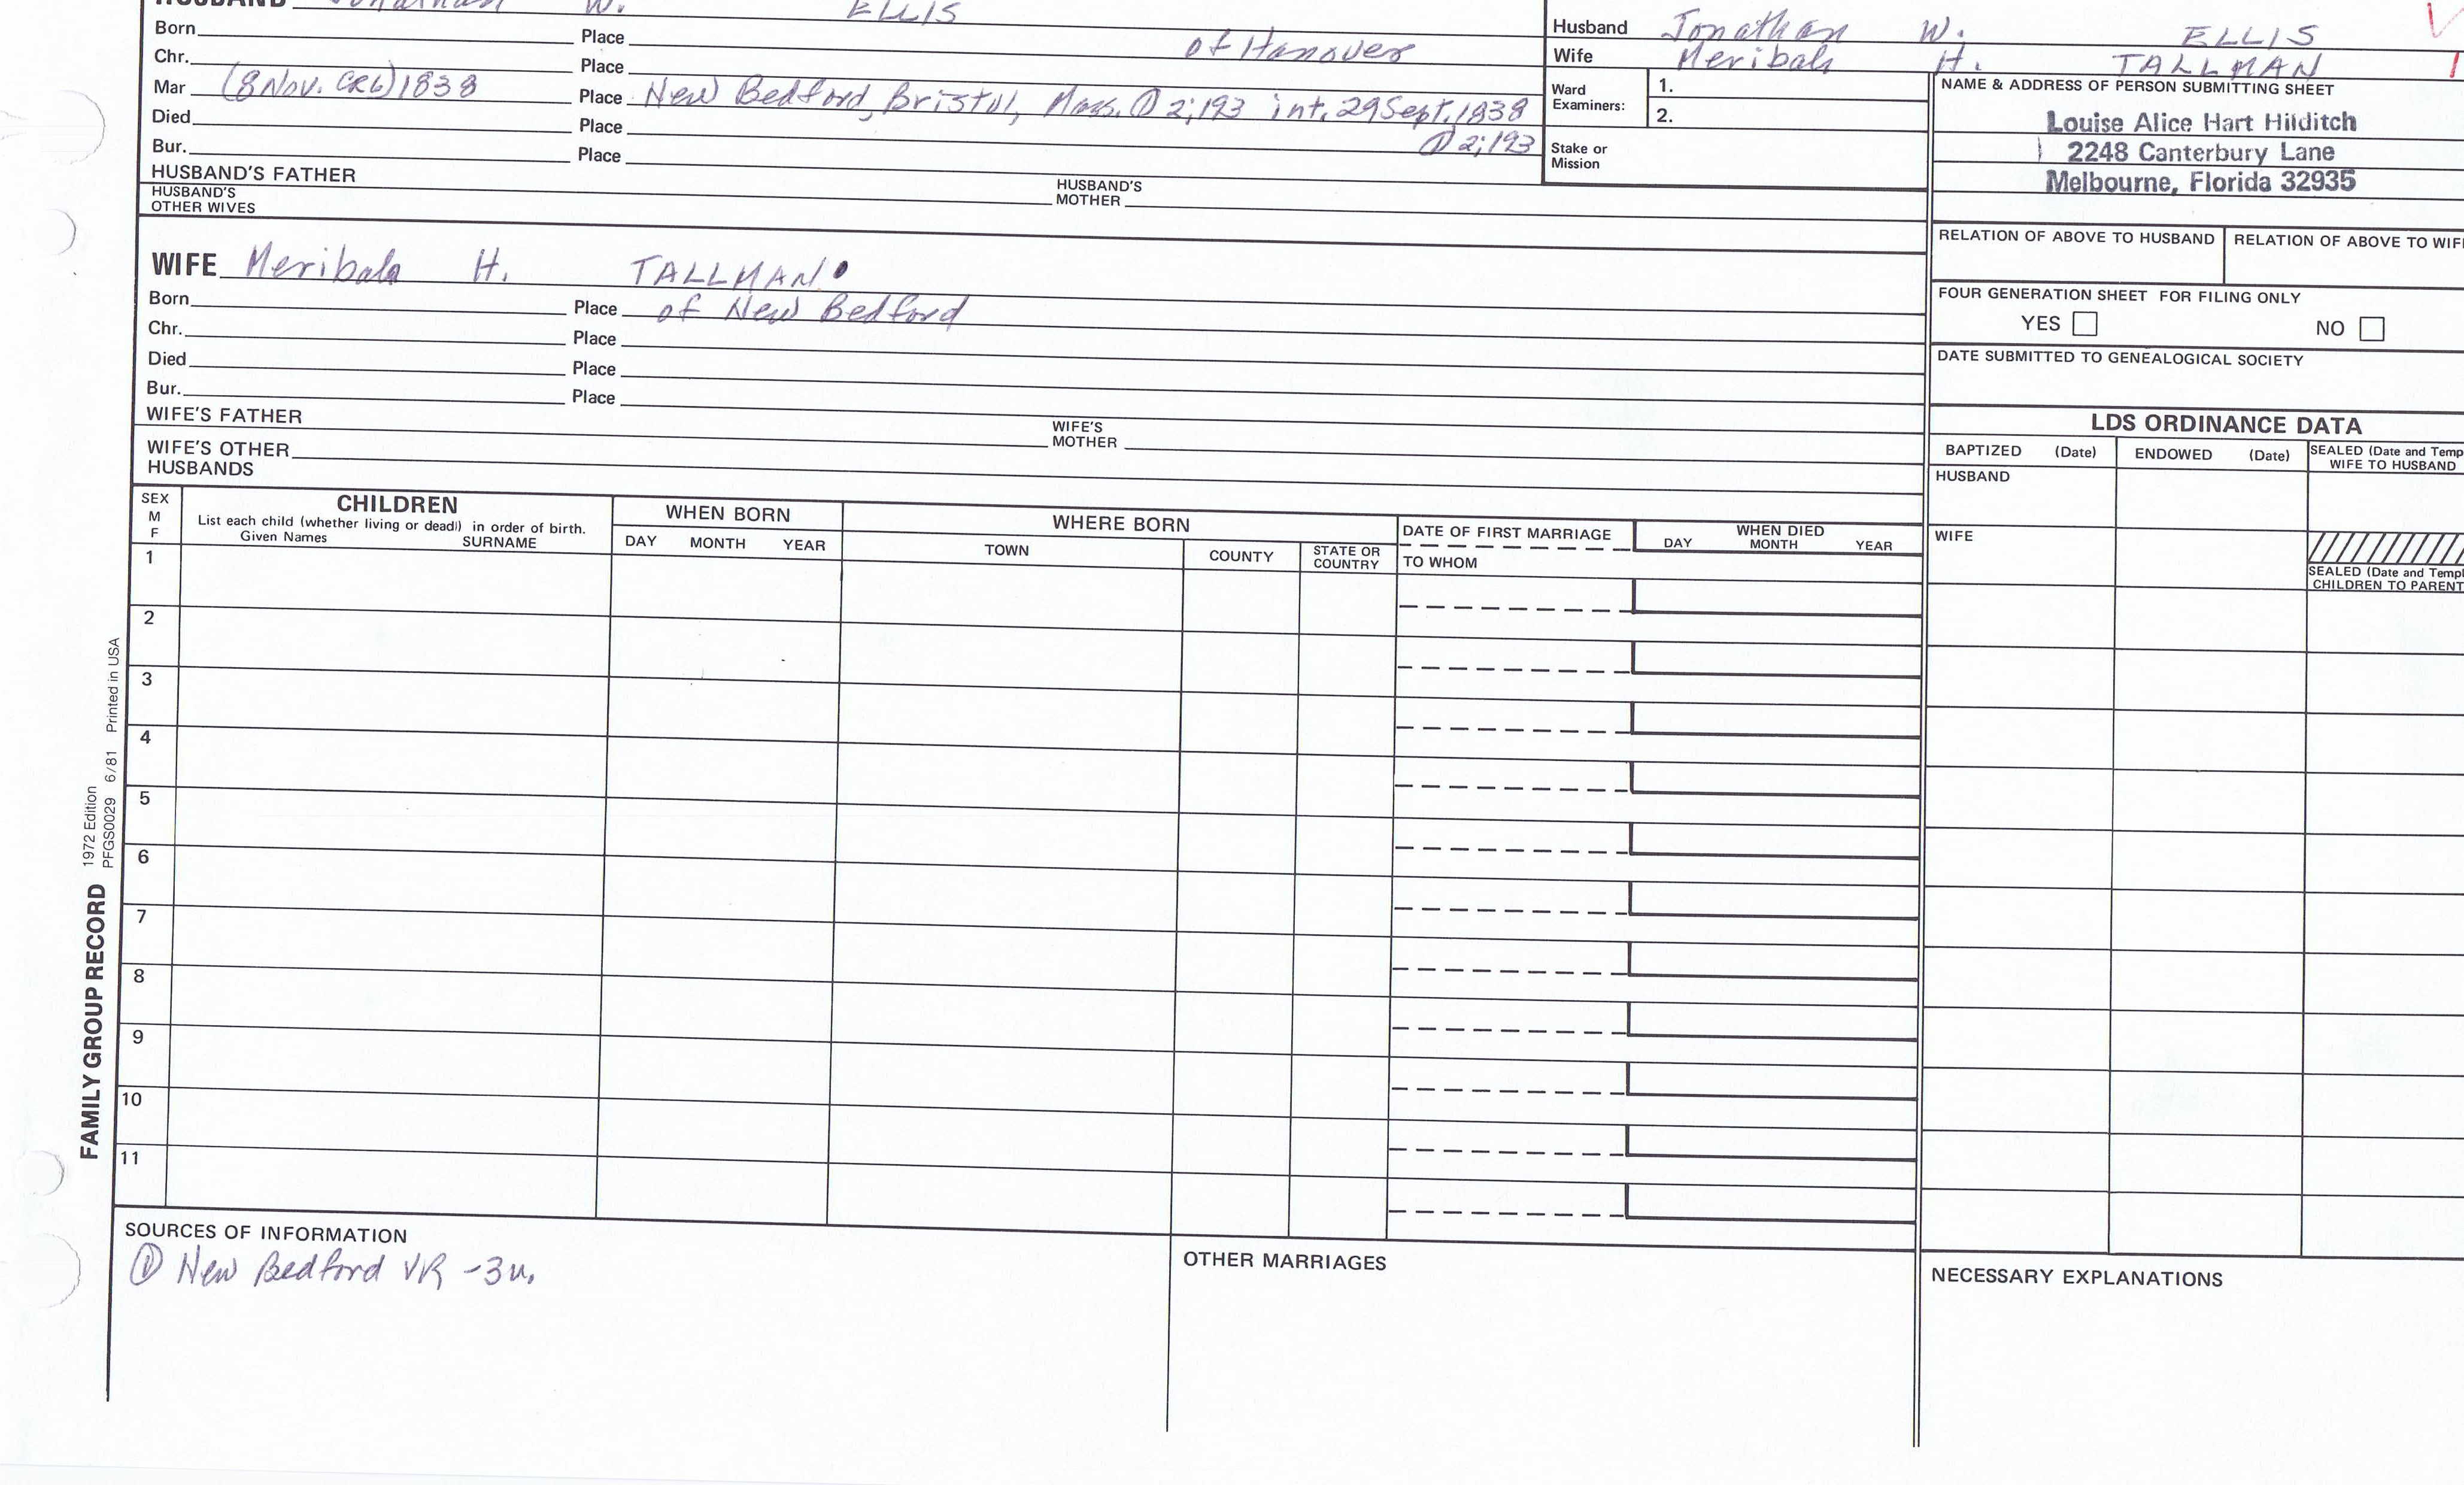 HUSBAND Jonathan W. ELLIS
Born Place of Hanover
Chr. Place
Mar (8 Nov. CR6) 1838 Place New Bedford, Bristol, Mass. ① 2;193 int. 29 Sept. 1838
① 2;193
Died Place
Bur. Place
HUSBAND'S FATHER HUSBAND'S MOTHER
HUSBAND'S OTHER WIVES
Husband Jonathan W. ELLIS
Wife Meribah H. TALLMAN
Ward Examiners: 1.
2.
Stake or Mission
NAME & ADDRESS OF PERSON SUBMITTING SHEET
Louise Alice Hart Hilditch
2248 Canterbury Lane
Melbourne, Florida 32935
RELATION OF ABOVE TO HUSBAND RELATION OF ABOVE TO WIF
FOUR GENERATION SHEET FOR FILING ONLY
YES NO
DATE SUBMITTED TO GENEALOGICAL SOCIETY
WIFE Meribah H. TALLMAN
Born Place of New Bedford
Chr. Place
Died Place
Bur. Place
WIFE'S FATHER WIFE'S MOTHER
WIFE'S OTHER HUSBANDS
LDS ORDINANCE DATA
BAPTIZED (Date) ENDOWED (Date) SEALED (Date and Temp
WIFE TO HUSBAND
HUSBAND
WIFE
SEALED (Date and Templ
CHILDREN TO PARENT
SEX
M
F
CHILDREN
List each child (whether living or dead) in order of birth.
Given Names SURNAME
WHEN BORN
DAY MONTH YEAR
WHERE BORN
TOWN COUNTY STATE OR COUNTRY
DATE OF FIRST MARRIAGE
TO WHOM
WHEN DIED
DAY MONTH YEAR
1
2
3
4
5
6
7
8
9
10
11
FAMILY GROUP RECORD
1972 Edition
PFGS0029 6/81 Printed in USA
SOURCES OF INFORMATION
① New Bedford VR -3u.
OTHER MARRIAGES
NECESSARY EXPLANATIONS